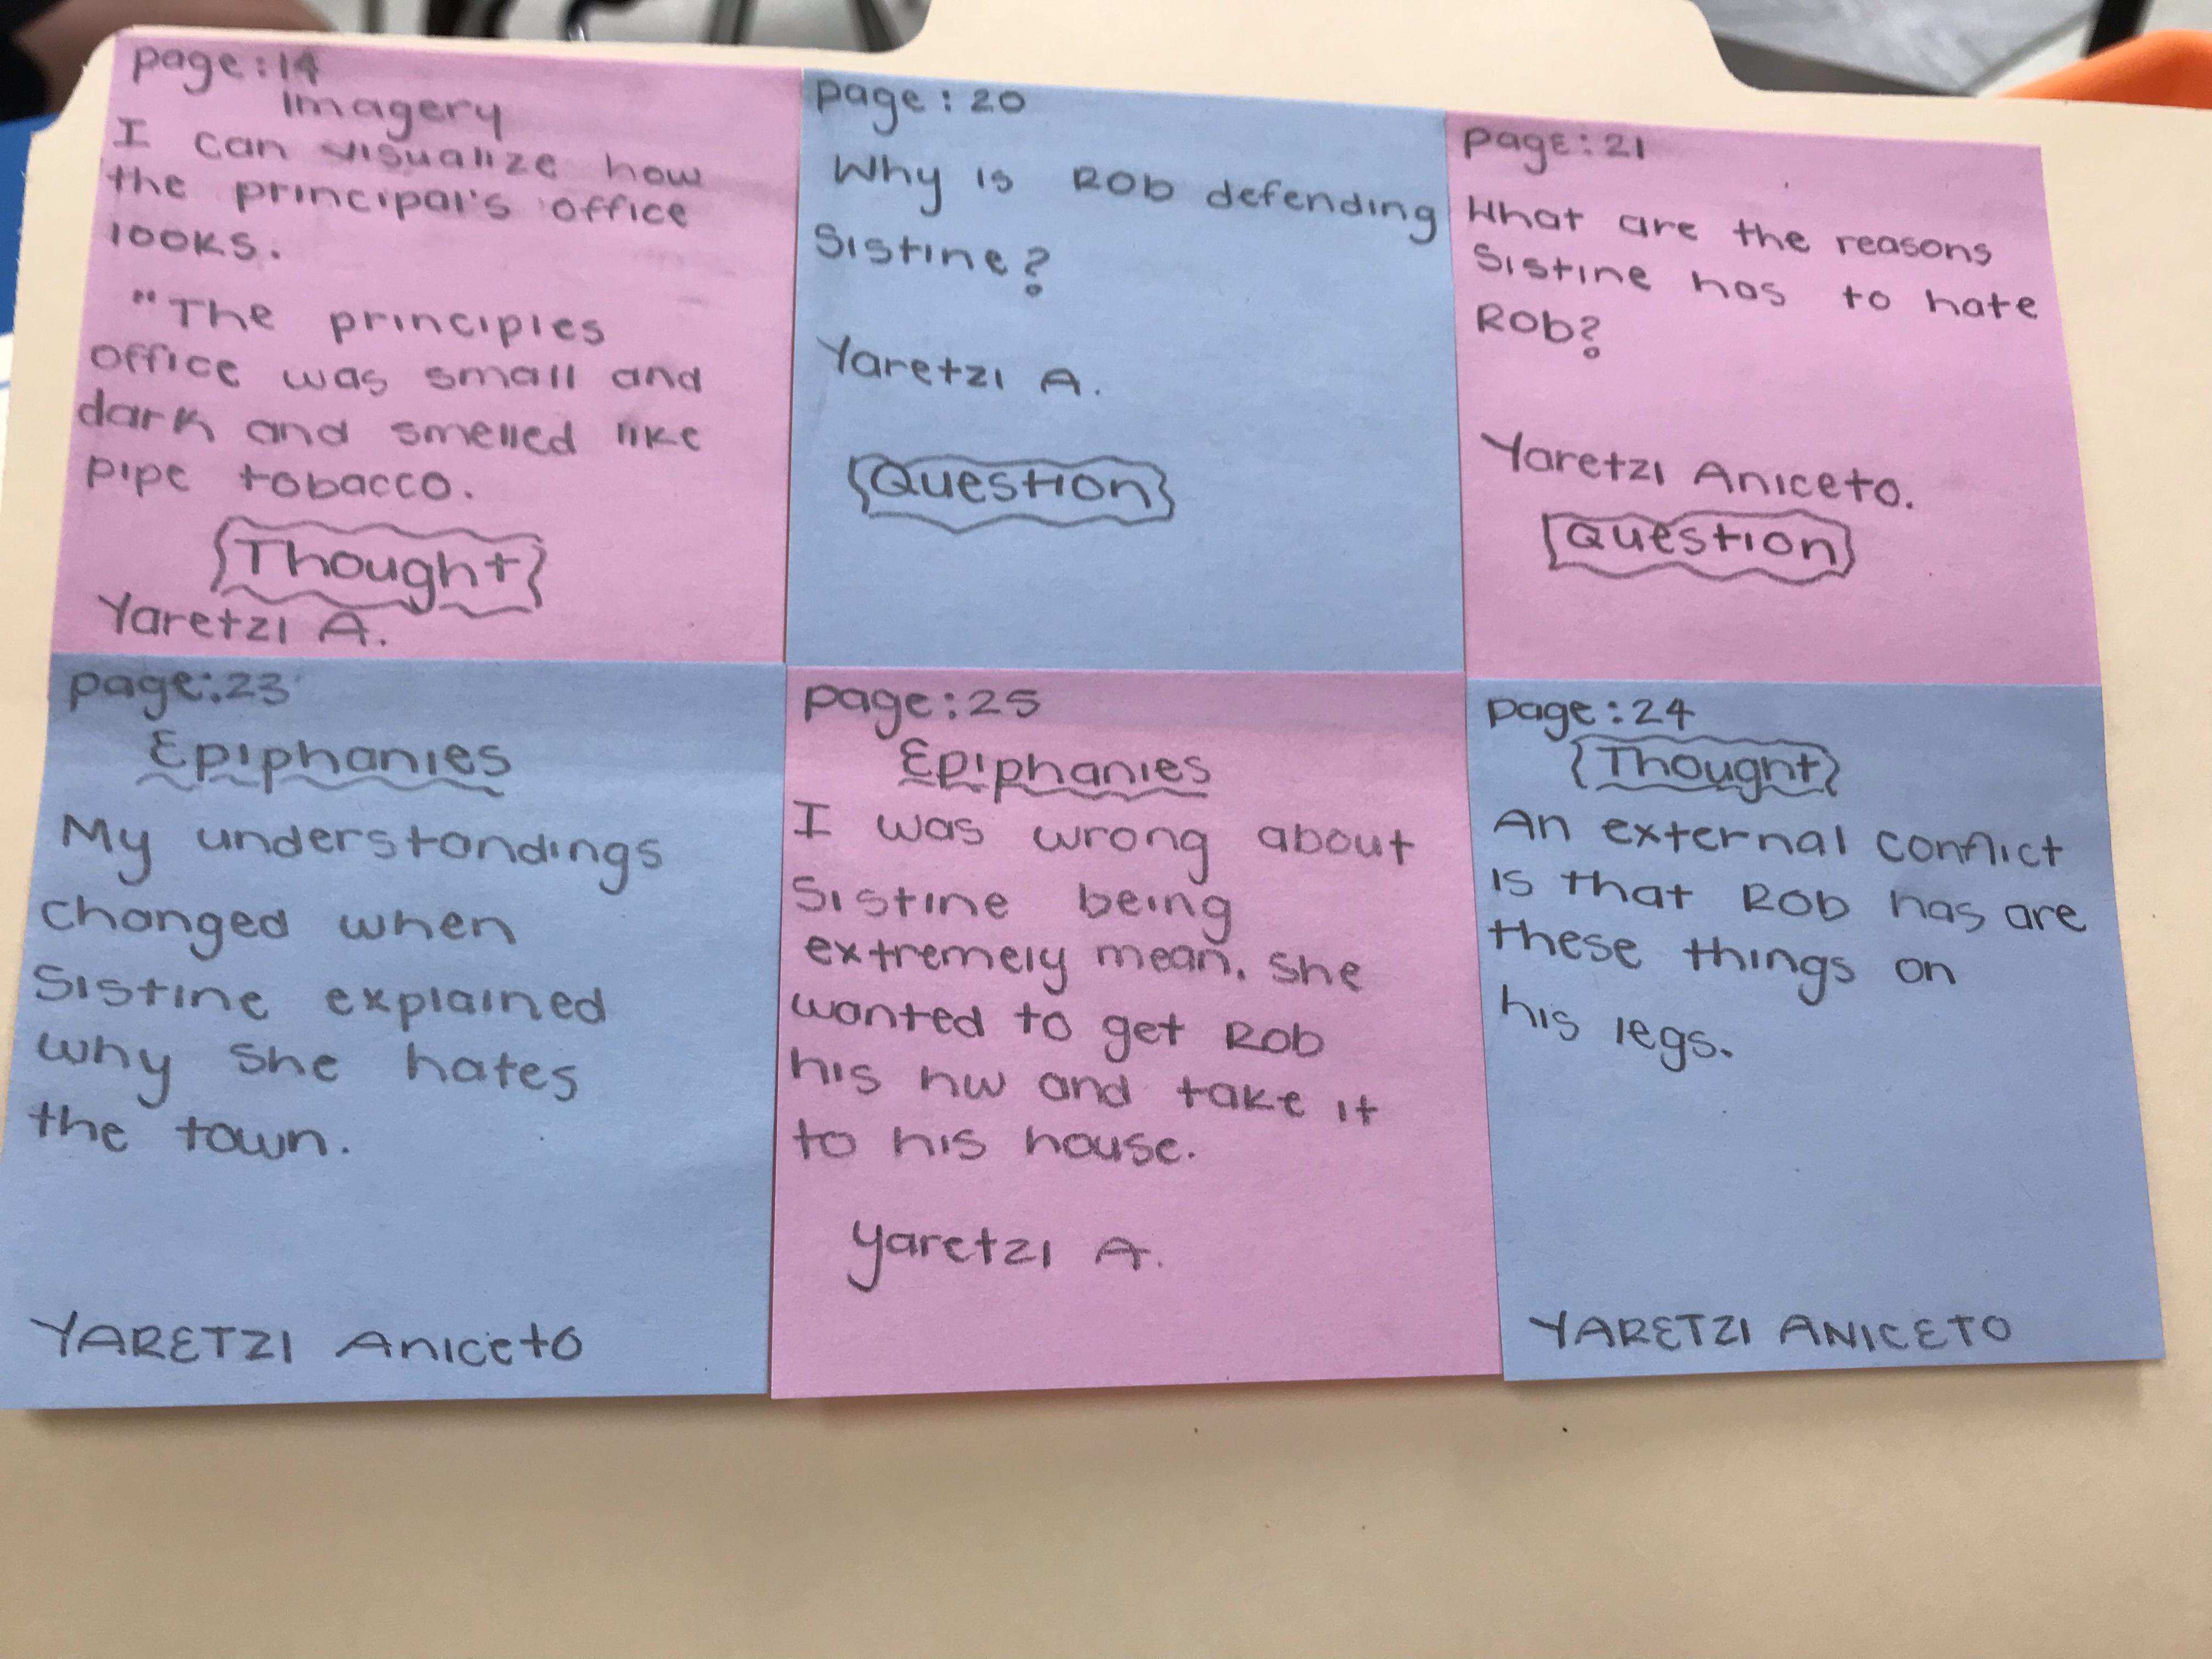 page:14
Imagery
I can visualize how
the principal's office
looks.
"The principles
office was small and
dark and smelled like
pipe tobacco.
Thought
Yaretzi A.
page: 20
Why is Rob defending
Sistine?
Yaretzi A.
Question
page:21
What are the reasons
Sistine has to hate
Rob?
Yaretzi Aniceto.
Question
page:23
Epiphanies
My understandings
changed when
Sistine explained
why she hates
the town.
YARETZI Aniceto
page:25
Epiphanies
I was wrong about
Sistine being
extremely mean. She
wanted to get Rob
his hw and take it
to his house.
Yaretzi A.
page:24
Thought
An external conflict
is that Rob has are
these things on
his legs.
YARETZI ANICETO